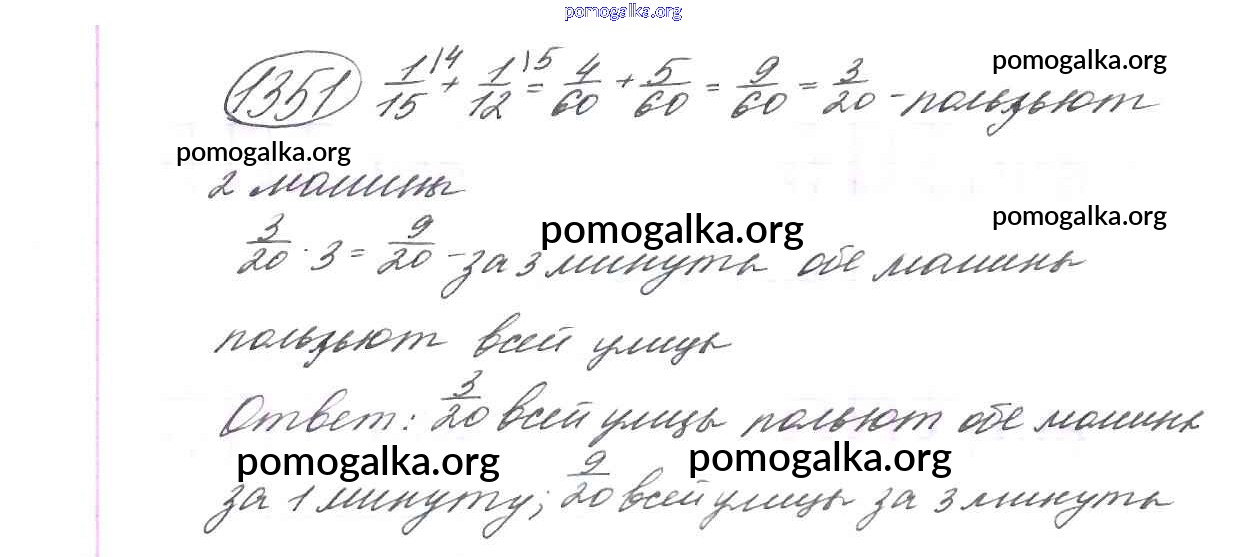 pomogalka.org
1351 1/15 \4 + 1/12 \5 = 4/60 + 5/60 = 9/60 = 3/20 - польяьют
pomogalka.org
pomogalka.org
2 машины
pomogalka.org
pomogalka.org
3/20 · 3 = 9/20 - за 3 минуты обе машины
польяьют всей улицы
Ответ: 3/20 всей улицы польют обе машины
pomogalka.org
pomogalka.org
за 1 минуту; 9/20 всей улицы за 3 минуты